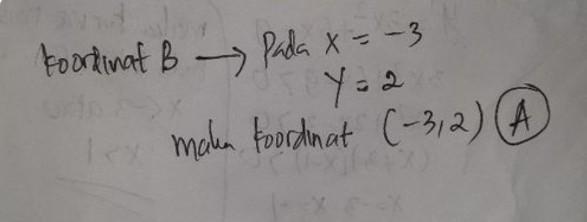 koordinat B → Pada x = -3
y = 2
maka koordinat (-3,2) A